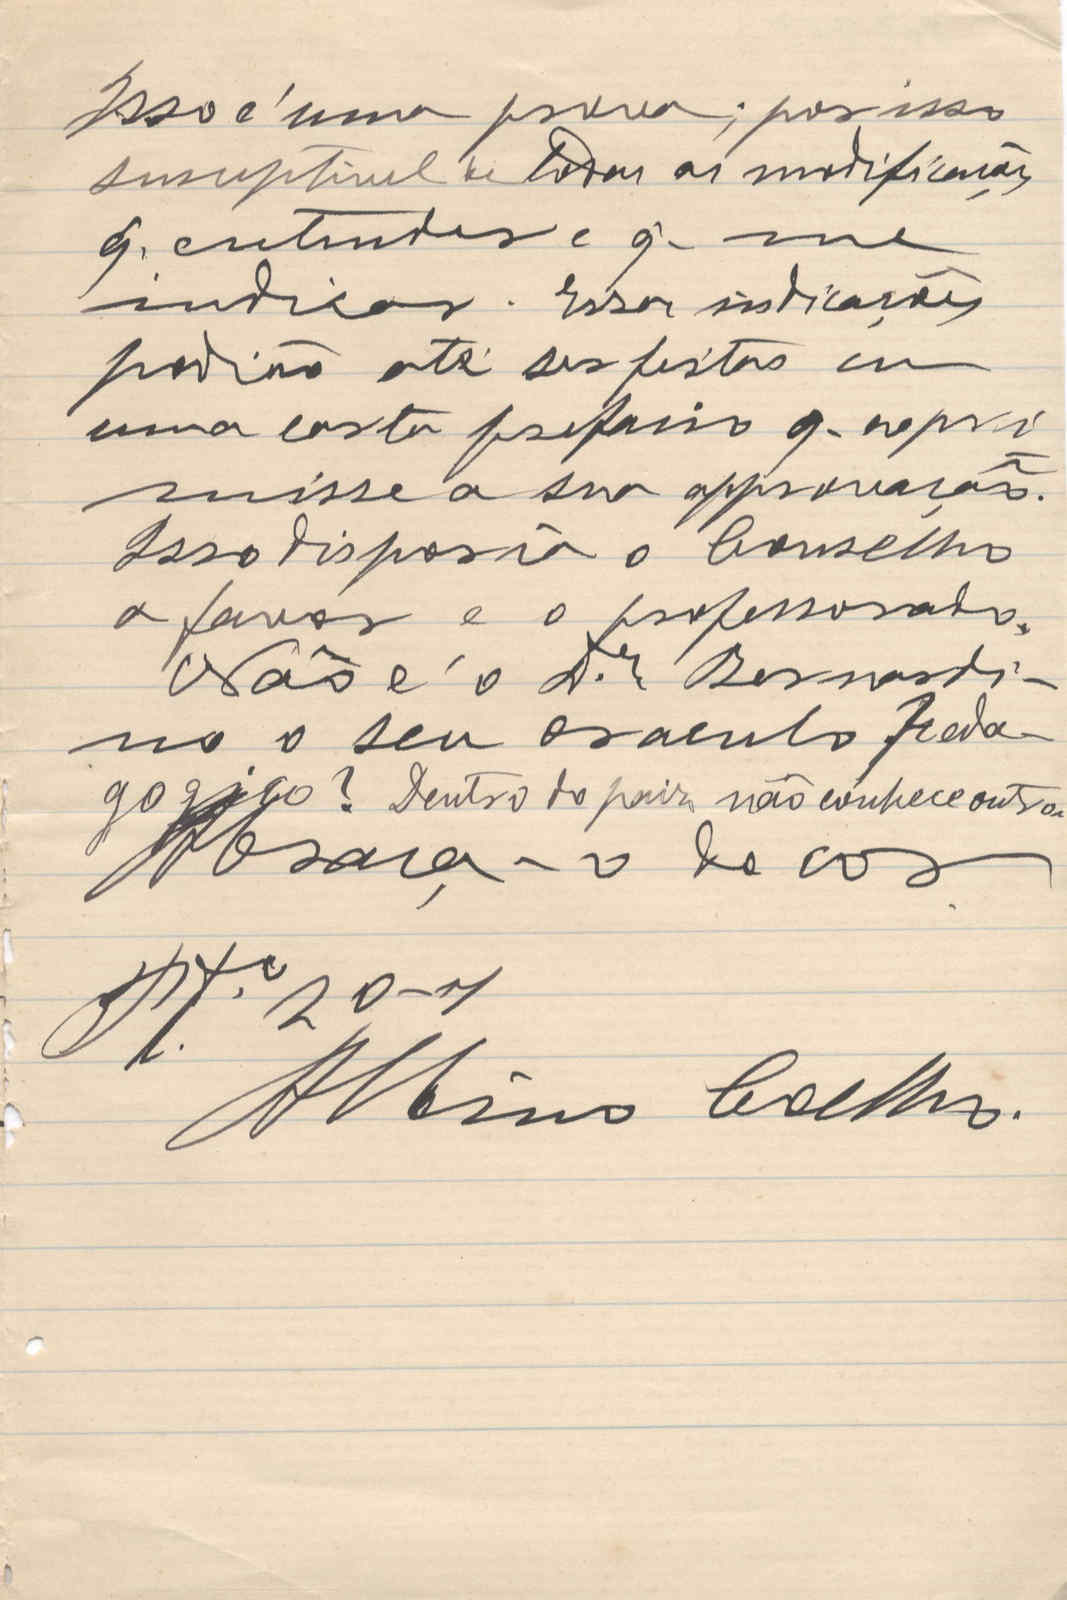 Isso é uma prova; por isso
susceptivel de todas as modificações
q. entender e q. me
indicar. Essas indicações
podião até ser feitas em
uma carta prefacio q. expri
misse a sua approvação.
Isso disporia o Conselho
a favor e o professorado.
Não é o Dr. Bernardi-
no o seu oraculo Peda-
gogigo? Dentro do paiz não conhece outro
Abraça-o do cor
20-1
Albino Coelho.